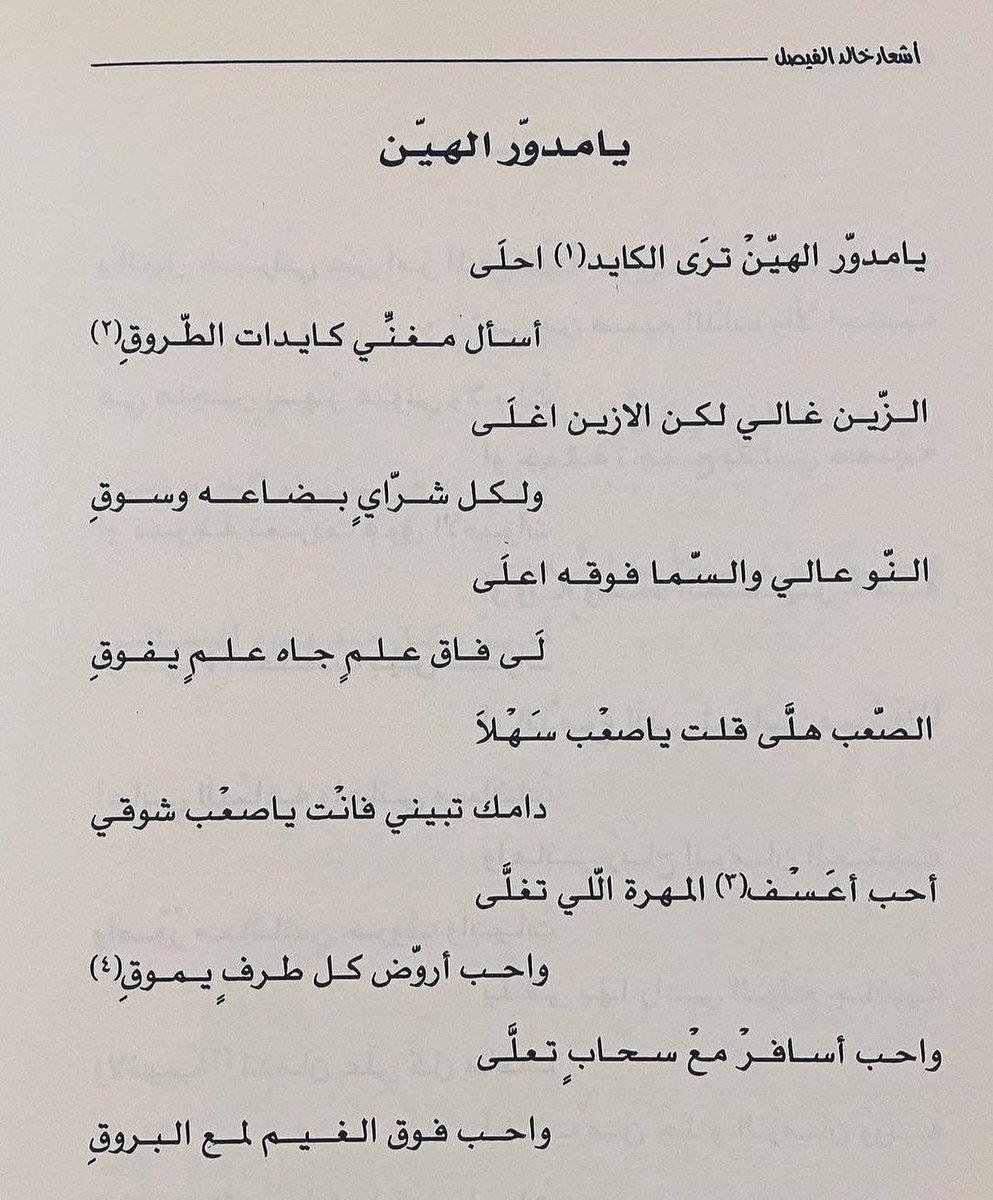 أشعار خالد الفيصل
يامدوّر الهيّن
يامدوّر الهيّنْ ترَى الكايد(١) احلَى
أسأل مغنِّي كايدات الطّروقِ(٢)
الزّين غالي لكن الازين اغلَى
ولكل شرّايٍ بضاعه وسوقِ
النّو عالي والسّما فوقه اعلَى
لَى فاق علمٍ جاه علمٍ يفوقِ
الصّعب هلَّى قلت ياصعْب سَهْلاَ
دامك تبيني فانْت ياصعْب شوقي
أحب أعَسْف(٣) المهرة اللّي تغلَّى
واحب أروّض كل طرفٍ يموقِ(٤)
واحب أسافرْ معْ سحابٍ تعلَّى
واحب فوق الغيم لمع البروقِ